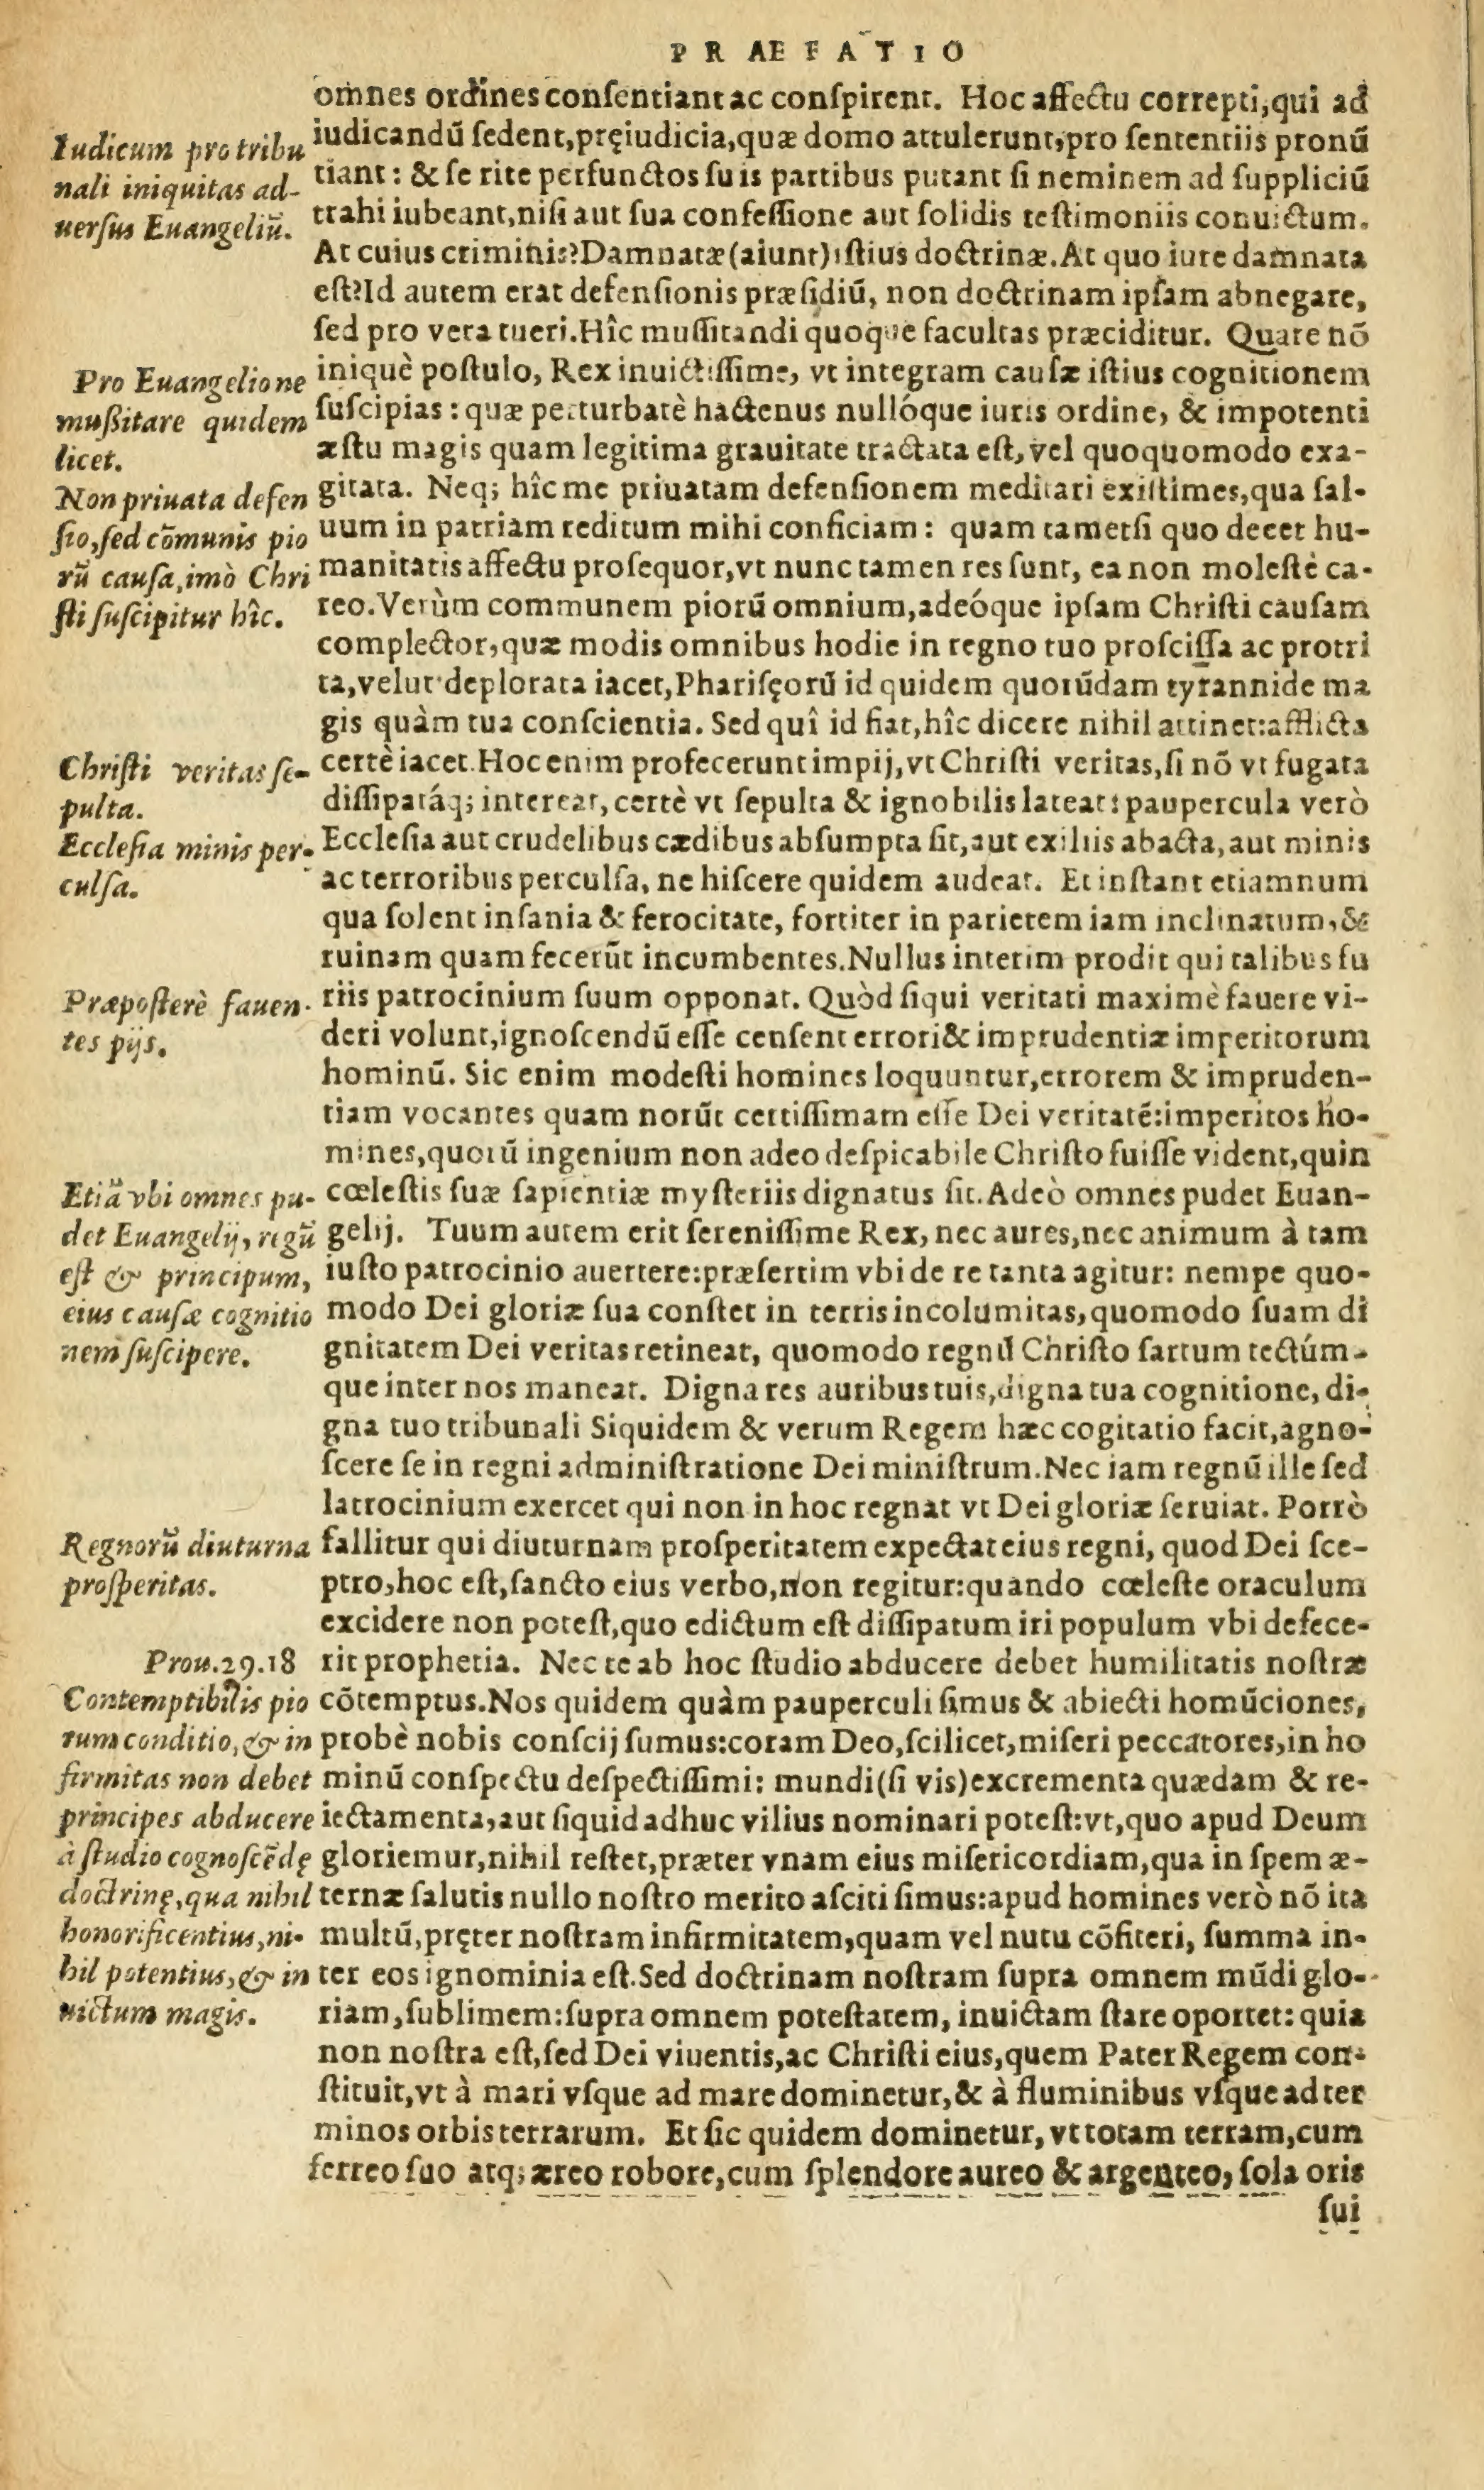 PRÆFATIO
omnes ordines conſentiant ac conſpirent. Hoc affectu correpti, qui ad
iudicandū ſedent, pręiudicia, quæ domo attulerunt, pro ſententiis pronū
tiant: & ſe rite perfunctos ſuis partibus putant ſi neminem ad ſuppliciū
trahi iubeant, niſi aut ſua confeſſione aut ſolidis teſtimoniis conuictum.
At cuius criminis? Damnatæ (aiunt) iſtius doctrinæ. At quo iure damnata
eſt? Id autem erat defenſionis præſidiū, non doctrinam ipſam abnegare,
ſed pro vera tueri. Hîc muſſitandi quoque facultas præciditur. Quare nō
iniquè poſtulo, Rex inuictiſſime, vt integram cauſæ iſtius cognitionem
ſuſcipias: quæ perturbatè hactenus nullóque iuris ordine, & impotenti
æſtu magis quam legitima grauitate tractata eſt, vel quoquomodo exa-
gitata. Neq; hîc me priuatam defenſionem meditari exiſtimes, qua ſal-
uum in patriam reditum mihi conficiam: quam tametſi quo decet hu-
manitatis affectu proſequor, vt nunc tamen res ſunt, ea non moleſtè ca-
reo. Verùm communem piorū omnium, adeóque ipſam Chriſti cauſam
complector, quæ modis omnibus hodie in regno tuo proſciſſa ac protri
ta, velut deplorata iacet, Phariſęorū id quidem quorūdam tyrannide ma
gis quàm tua conſcientia. Sed quî id fiat, hîc dicere nihil attinet: afflicta
certè iacet. Hoc enim profecerunt impij, vt Chriſti veritas, ſi nō vt fugata
diſſipatáq; intereat, certè vt ſepulta & ignobilis lateat: paupercula verò
Eccleſia aut crudelibus cædibus abſumpta ſit, aut exiliis abacta, aut minis
ac terroribus perculſa, ne hiſcere quidem audeat. Et inſtant etiamnum
qua ſolent inſania & ferocitate, fortiter in parietem iam inclinatum, &
ruinam quam fecerūt incumbentes. Nullus interim prodit qui talibus fu
riis patrocinium ſuum opponat. Quòd ſiqui veritati maximè fauere vi-
deri volunt, ignoſcendū eſſe cenſent errori & imprudentiæ imperitorum
hominū. Sic enim modeſti homines loquuntur, errorem & impruden-
tiam vocantes quam norūt certiſſimam eſſe Dei veritatē: imperitos ho-
mines, quorū ingenium non adeo deſpicabile Chriſto fuiſſe vident, quin
cœleſtis ſuæ ſapientiæ myſteriis dignatus ſit. Adeò omnes pudet Euan-
gelij. Tuum autem erit ſereniſſime Rex, nec aures, nec animum à tam
iuſto patrocinio auertere: præſertim vbi de re tanta agitur: nempe quo-
modo Dei gloriæ ſua conſtet in terris incolumitas, quomodo ſuam di
gnitatem Dei veritas retineat, quomodo regnū Chriſto ſartum tectúm-
que inter nos maneat. Digna res auribus tuis, digna tua cognitione, di-
gna tuo tribunali Siquidem & verum Regem hæc cogitatio facit, agno-
ſcere ſe in regni adminiſtratione Dei miniſtrum. Nec iam regnū ille ſed
latrocinium exercet qui non in hoc regnat vt Dei gloriæ ſeruiat. Porrò
fallitur qui diuturnam proſperitatem expectat eius regni, quod Dei ſce-
ptro, hoc eſt, ſancto eius verbo, non regitur: quando cœleſte oraculum
excidere non poteſt, quo edictum eſt diſſipatum iri populum vbi defece-
rit prophetia. Nec te ab hoc ſtudio abducere debet humilitatis noſtræ
cōtemptus. Nos quidem quàm pauperculi ſimus & abiecti homūciones,
probè nobis conſcij ſumus: coram Deo, ſcilicet, miſeri peccatores, in ho
minū conſpectu deſpectiſſimi: mundi (ſi vis) excrementa quædam & re-
iectamenta, aut ſiquid adhuc vilius nominari poteſt: vt, quo apud Deum
gloriemur, nihil reſtet, præter vnam eius miſericordiam, qua in ſpem æ-
ternæ ſalutis nullo noſtro merito aſciti ſimus: apud homines verò nō ita
multū, pręter noſtram infirmitatem, quam vel nutu cōfiteri, ſumma in-
ter eos ignominia eſt. Sed doctrinam noſtram ſupra omnem mūdi glo-
riam, ſublimem: ſupra omnem poteſtatem, inuictam ſtare oportet: quia
non noſtra eſt, ſed Dei viuentis, ac Chriſti eius, quem Pater Regem con-
ſtituit, vt à mari vſque ad mare dominetur, & à fluminibus vſque ad ter
minos orbis terrarum. Et ſic quidem dominetur, vt totam terram, cum
ferreo ſuo atq; æreo robore, cum ſplendore aureo & argenteo, ſola oris
ſui
Iudicum pro tribu
nali iniquitas ad-
uerſus Euangeliū.
Pro Euangelio ne
muſsitare quidem
licet.
Non priuata defen
ſio, ſed cōmunis pio
rū cauſa, imò Chri
ſti ſuſcipitur hîc.
Chriſti veritas ſe-
pulta.
Eccleſia minis per-
culſa.
Præpoſterè fauen-
tes pijs.
Etiā vbi omnes pu-
det Euangelij, regū
eſt & principum,
eius cauſæ cognitio
nem ſuſcipere.
Regnorū diuturna
proſperitas.
Prou.29.18
Contemptibilis pio
rum conditio, & in
firmitas non debet
principes abducere
à ſtudio cognoſcēdę
doctrinę, qua nihil
honorificentius, ni-
hil potentius, & in
uictum magis.